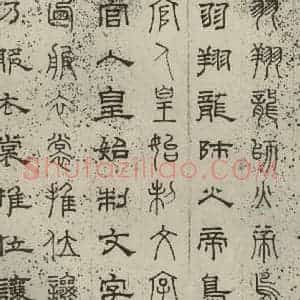 羽翔龍師火帝鳥
羽翔龍師火帝鳥
官人皇始制文字
官人皇始制文字
乃服衣裳推位讓
乃服衣裳推位讓
Shufaziliao.com